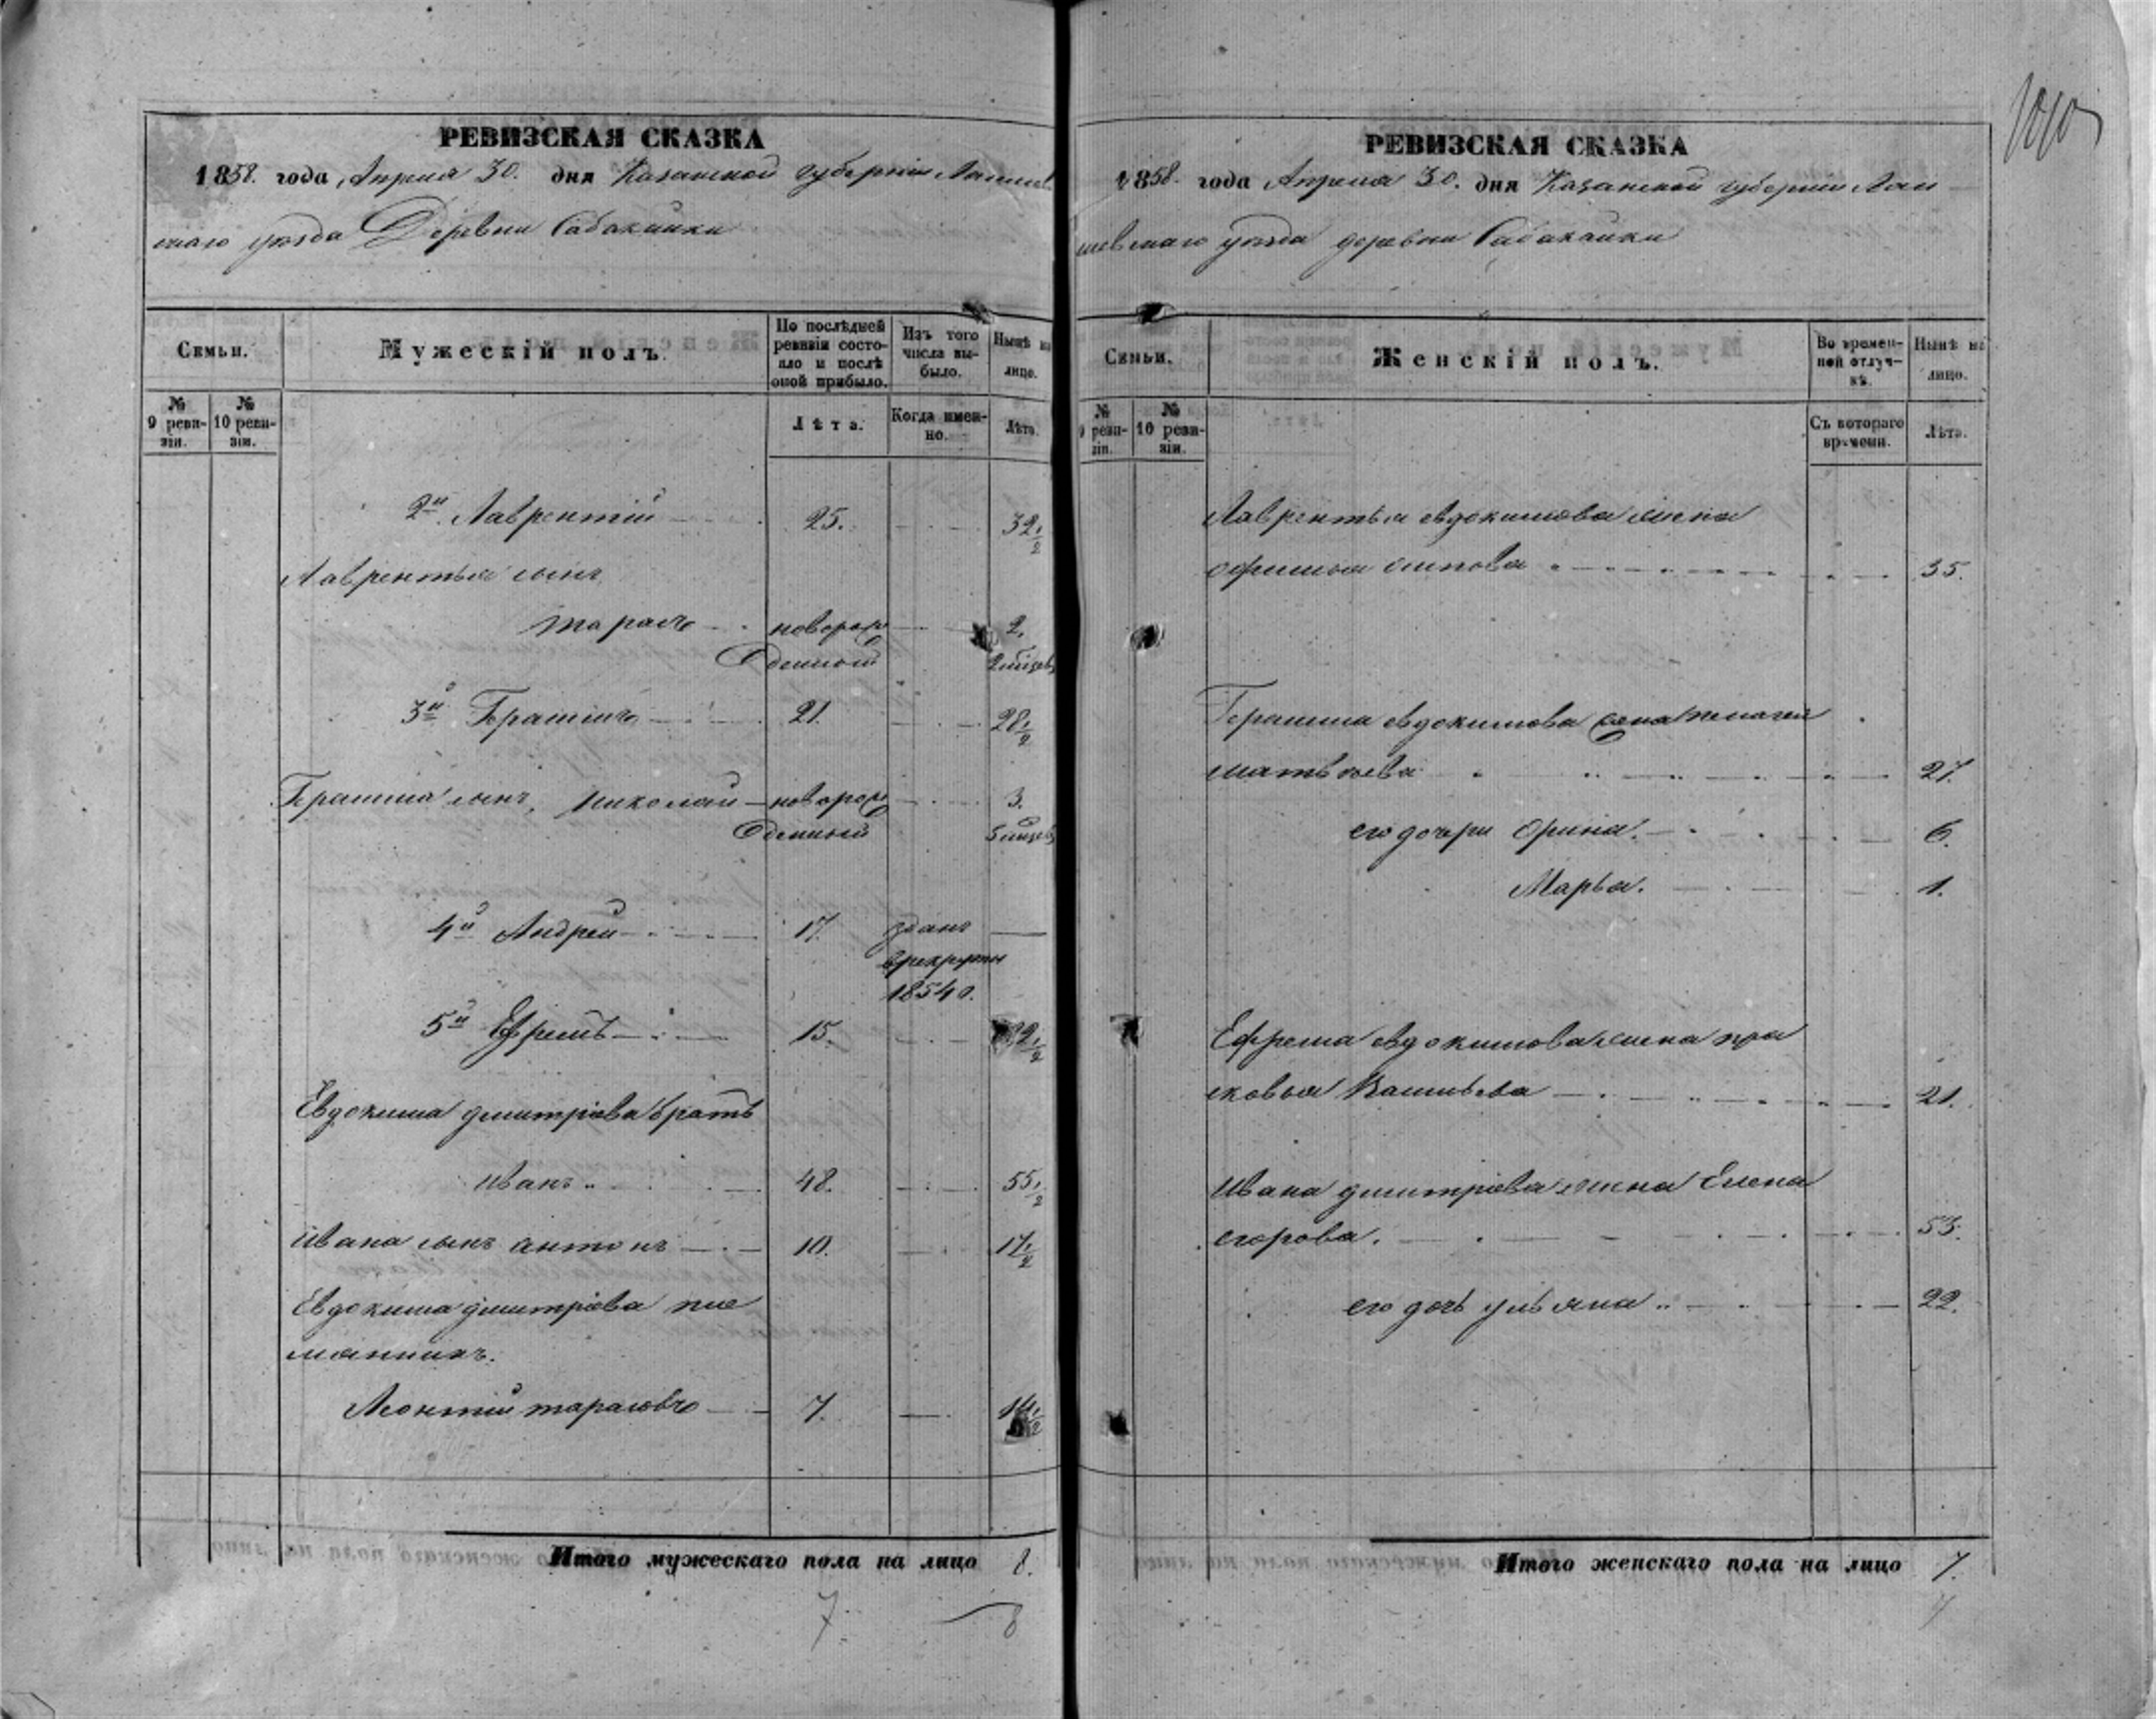 РЕВИЗСКАЯ СКАЗКА
1858. года Апреля 30. дня Казанской губернiи Лаишев
скаго уѣзда Деревни Сабакайки
Семьи.
Мужескiй полъ.
По послѣдней ревизiи состояло и послѣ оной прибыло.
Изъ того числа выбыло.
Нынѣ на лицо.
№ 9 ревизiи.
№ 10 ревизiи.
Лѣта.
Когда именно.
Лѣта.
2й. Лаврентiй 25. 32 1/2
Лаврентья сынъ
тарасъ новорож 2.
денной 2 мѣсецъ
3й Герасимъ 21. 28 1/2
Герасима сынъ, николай новорож 3.
денный 5 мѣсецъ
4й Андрей 17. зданъ
врекруты
1854 г.
5й Ефремъ 15. 22 1/2
Евдокима дмитрiева братъ
иванъ 48. 55 1/2
ивана сынъ антонъ 10. 17 1/2
Евдокима дмитрiева пле
мянникъ.
Леонтiй тарасовъ 7. 14 1/2
Итого мужескаго пола на лицо 8.
7. 8
1010
РЕВИЗСКАЯ СКАЗКА
1858. года Апреля 30. дня Казанской губернiи Лаи
шевскаго уѣзда деревни Сабакайки
Семьи.
Женскiй полъ.
Во временной отлучкѣ.
Нынѣ на лицо.
№ 9 ревизiи.
№ 10 ревизiи.
Съ котораго времени.
Лѣта.
Лаврентья евдокимова жена
офимья осипова 35.
Герасима евдокимова жена пелагея
матвѣева 27.
его дочери Орина. 6.
Марья. 1.
Ефрема евдокимова жена пра
сковья Васильева 21.
ивана дмитрiева жена Елена
егорова. 53.
его дочь ульяна 22.
Итого женскаго пола на лицо 7.
7